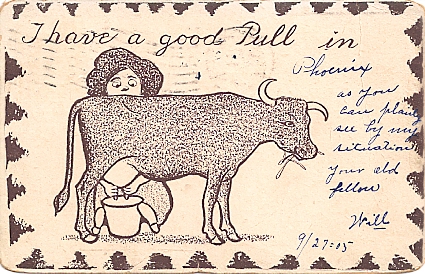 I have a good Pull in
Phoenix
as you
can plainly
see by my
situation
Your old
fellow
Will
9/27-05